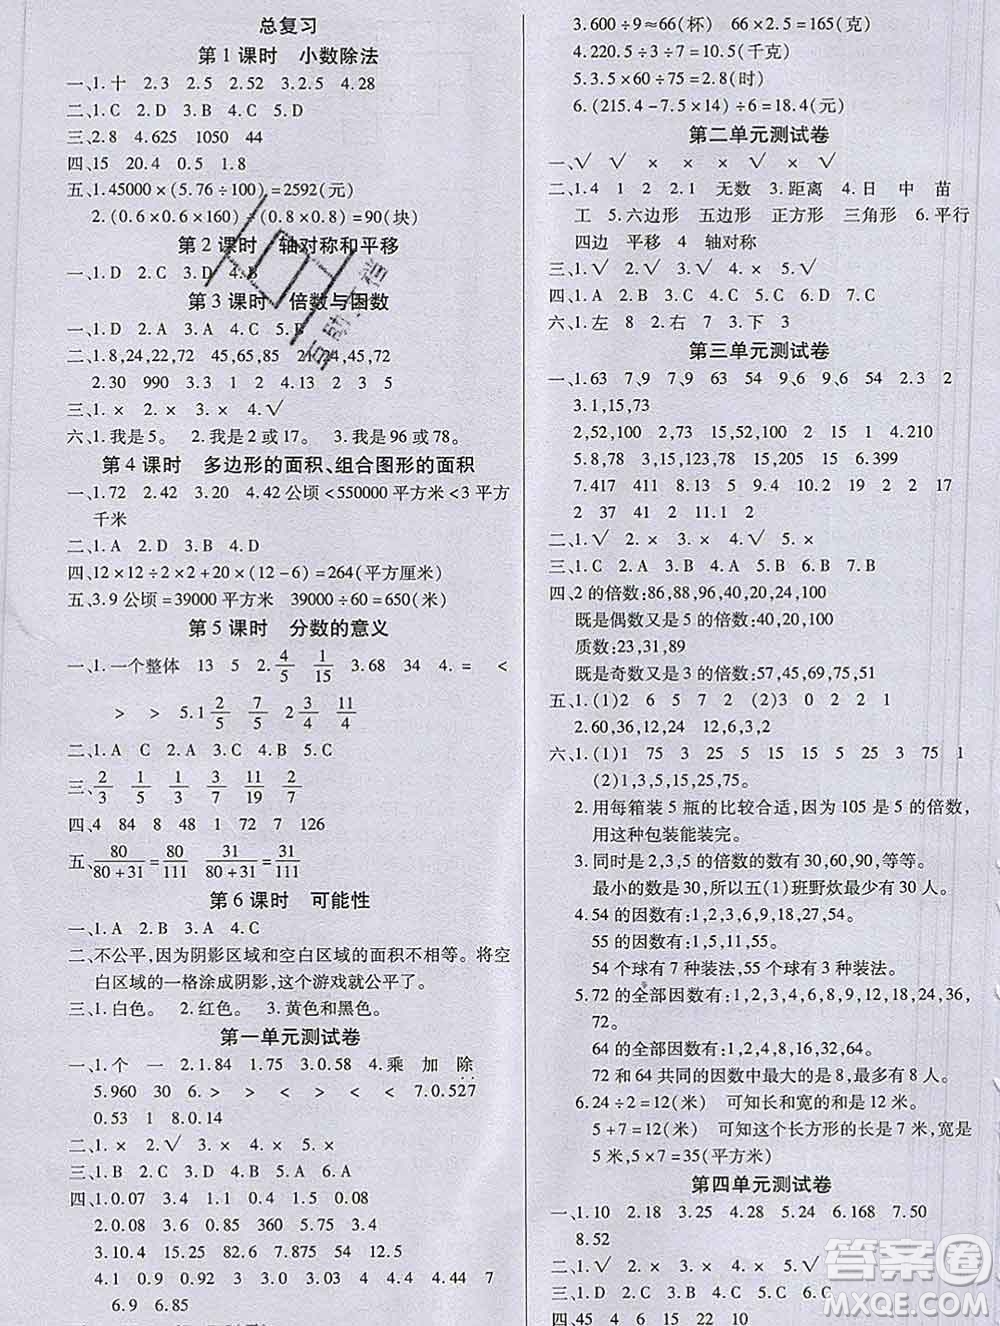 总复习
第1课时 小数除法
一、1.十 2.3 2.5 2.52 3.2.5 4.28
二、1.C 2.D 3.B 4.C 5.D
三、2.8 4.625 1050 44
四、15 20.4 0.5 1.8
五、1.45000×(5.76÷100)=2592(元)
2.(0.6×0.6×160)÷(0.8×0.8)=90(块)
第2课时 轴对称和平移
一、1.D 2.C 3.D 4.B
第3课时 倍数与因数
一、1.B 2.A 3.A 4.C 5.B
二、1.8,24,22,72 45,65,85 21,24,45,72
2.30 990 3.1 2 4.13 2 3 5
三、1.× 2.× 3.× 4.√
六、1.我是5。 2.我是2或17。 3.我是96或78。
第4课时 多边形的面积、组合图形的面积
一、1.72 2.42 3.20 4.42公顷<550000平方米<3平方
千米
二、1.A 2.D 3.B 4.D
四、12×12÷2×2+20×(12-6)=264(平方厘米)
五、3.9公顷=39000平方米 39000÷60=650(米)
第5课时 分数的意义
一、1.一个整体 13 5 2.4/5 1/15 3.68 34 4.= <
> > 5.1 2/5 7/5 2 3/4 11/4
二、1.A C 2.A 3.C 4.A
三、2/3 1/3 2/7 3/7 11/19 2/7
四、4 84 8 48 1 72 7 126
五、80/(80+31)=80/111 31/(80+31)=31/111
第6课时 可能性
一、1.A 2.B 3.A 4.C
二、不公平,因为阴影区域和空白区域的面积不相等。将空
白区域的一格涂成阴影,这个游戏就公平了。
三、1.白色。 2.红色。 3.黄色和黑色。
第一单元测试卷
一、1.个 一 2.1.84 1.75 3.0.58 4.乘 加 除
5.960 30 6.> > < > < < 7.0.5̇27̇
0.53 1 8.0.14
二、1.× 2.√ 3.× 4.× 5.×
三、1.B 2.C 3.D 4.C 5.A 6.A
四、1.0.07 3.4 15 1.4 1.3 0.6
2.0.08 3.5 0.89 360 0.03 80
3.10.4 15.25 82.6 0.57 54 12.5
4.1 0.9 0.92 3 3.14 4.48 7
6.9 6.85
3.600÷9≈66(杯) 66×2.5=165(克)
4.220.5÷3÷7=10.5(千克)
5.3.5×60÷75=2.8(时)
6.(215.4-7.5×14)÷6=18.4(元)
第二单元测试卷
一、√ √ × × × √ × √
二、1.4 1 2 2.1 无数 3.距离 4.日 中 苗
工 5.六边形 五边形 正方形 三角形 6.平行
四边 平移 4 轴对称
三、1.√ 2.× 3.× 4.√ 5.√
四、1.A 2.B 3.A 4.C 5.B 6.D 7.C
六、1.左 8 2.右 7 3.下 3
第三单元测试卷
一、1.63 7、9 7、9 63 54 9、6 9、6 54 2.3 2
3.1,15,73
2,52,100 52,100 15,52,100 15 2 4.210
5.8,78 4,13,52 7,13,15 6.399
7.417 411 8.0 5 9.9 2 2 2 17
2 37 41 2 11.1 2
二、1.√ 2.× 3.× 4.√ 5.×
三、1.C 2.D 3.C 4.A 5.D 6.B 7.C 8.A
四、2的倍数:86,88,96,40,20,24,100
既是偶数又是5的倍数:40,20,100
质数:23,31,89
既是奇数又是3的倍数:57,45,69,75,51
五、1.(1)2 6 5 7 2 (2)3 0 2 2 1
2.60,36,12,24 12,6,3,2
六、1.(1)1 75 3 25 5 15 15 5 25 3 75 1
(2)1,3,5,15,25,75。
2.用每箱装5瓶的比较合适,因为105是5的倍数,
用这种包装能装完。
3.同时是2,3,5的倍数的数有30,60,90,等等。
最小的数是30,所以五(1)班野炊最少有30人。
4.54的因数有:1,2,3,6,9,18,27,54。
55的因数有:1,5,11,55。
54个球有7种装法,55个球有3种装法。
5.72的全部因数有:1,2,3,4,6,8,9,12,18,24,36,
72。
64的全部因数有:1,2,4,8,16,32,64。
72和64共同的因数中最大的是8,所以最多有8人。
6.24÷2=12(米) 可知长和宽的和是12米。
5+7=12(米) 可知这个长方形的长是7米,宽是
5米,5×7=35(平方米)
第四单元测试卷
一、1.10 2.18 3.25 4.28 5.24 6.168 7.50
8.52
二、1.√ 2.× 3.× 4.× 5.√
三、1.D 2.A 3.B 4.C 5.A 6.C
四、45 4 6 15 22 10
答案圈
MXQE.COM